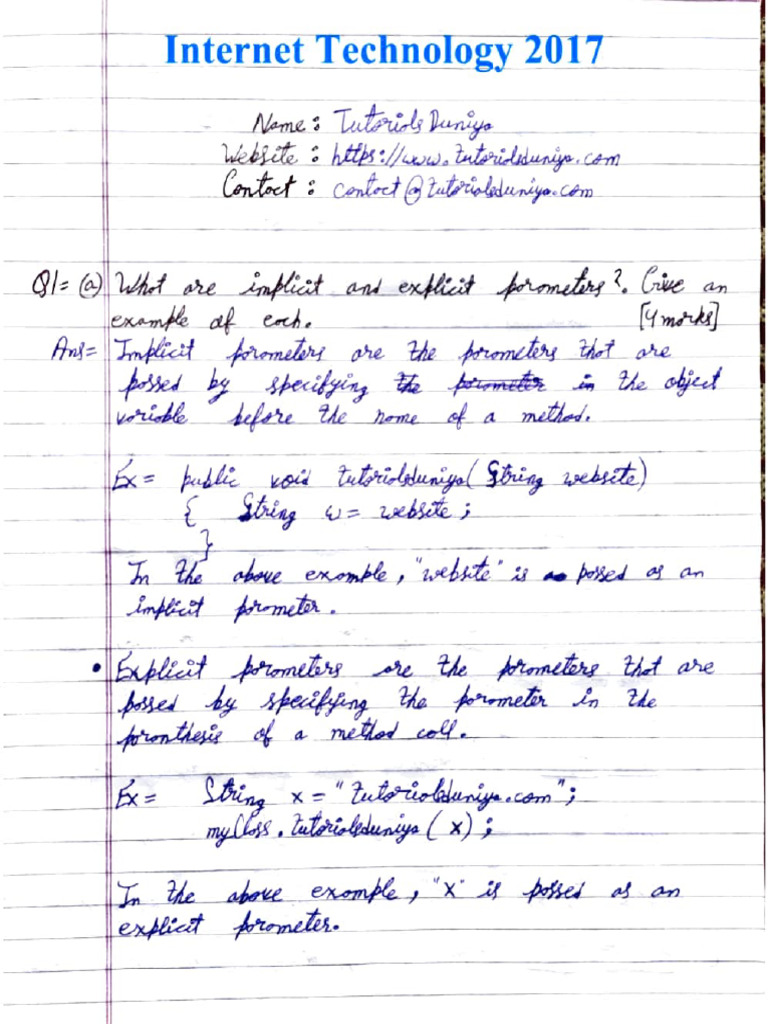 Internet Technology 2017
Name : Tutorials Duniya
Website : https://www.tutorialsduniya.com
Contact : contact@tutorialsduniya.com
Q1= (a) What are implicit and explicit parameters?. Give an
example of each. [4 marks]
Ans= Implicit parameters are the parameters that are
passed by specifying the parameter in the object
variable before the name of a method.
Ex= public void tutorialsduniya( String website)
{ String w = website ;
}
In the above example, "website" is passed as an
implicit parameter.
• Explicit parameters are the parameters that are
passed by specifying the parameter in the
pranthesis of a method call.
Ex= String x = "tutorialsduniya.com" ;
myClass . tutorialsduniya ( x) ;
In the above example, "x" is passed as an
explicit parameter.